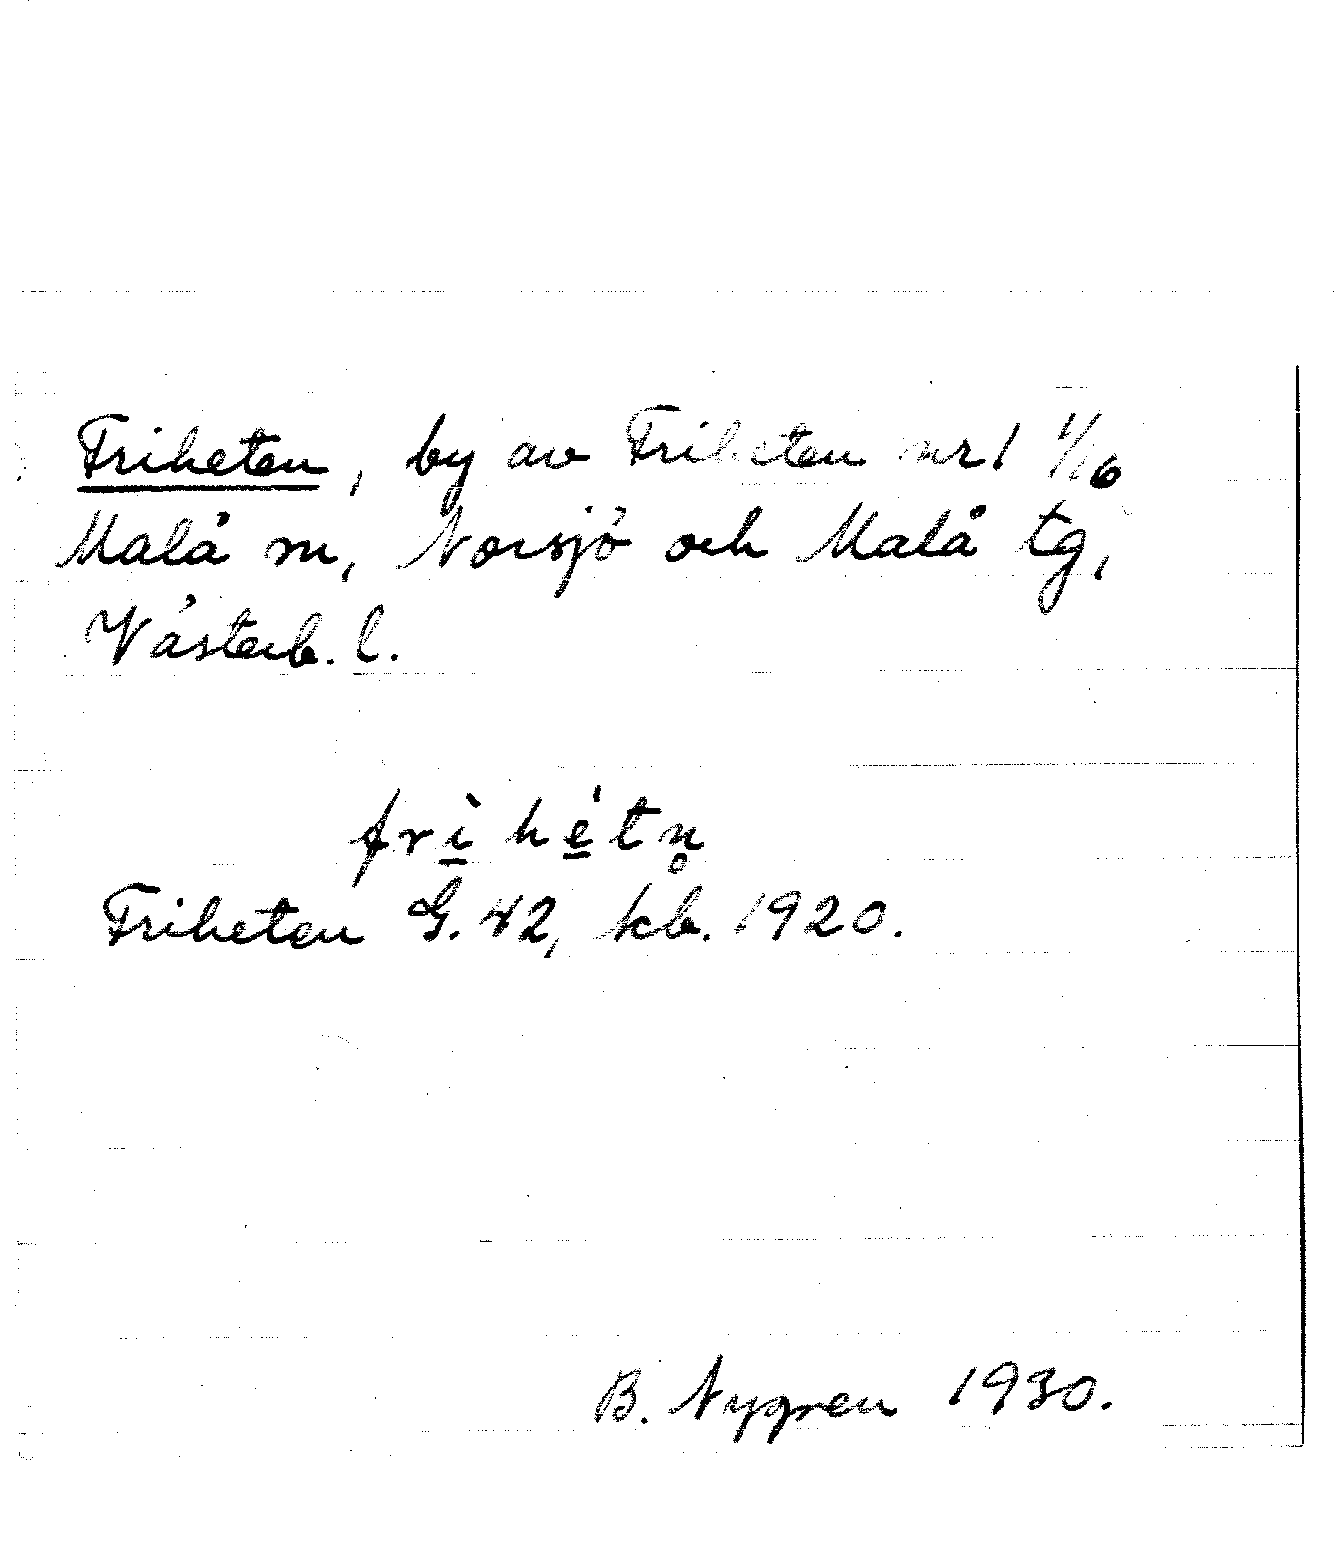 Friheten, by av Friheten nr 1 1/16
Malå sn, Norsjö och Malå tg,
Västerb. l.
frìhétn̥
Friheten G. 42, kb. 1920.
B. Nygren 1930.